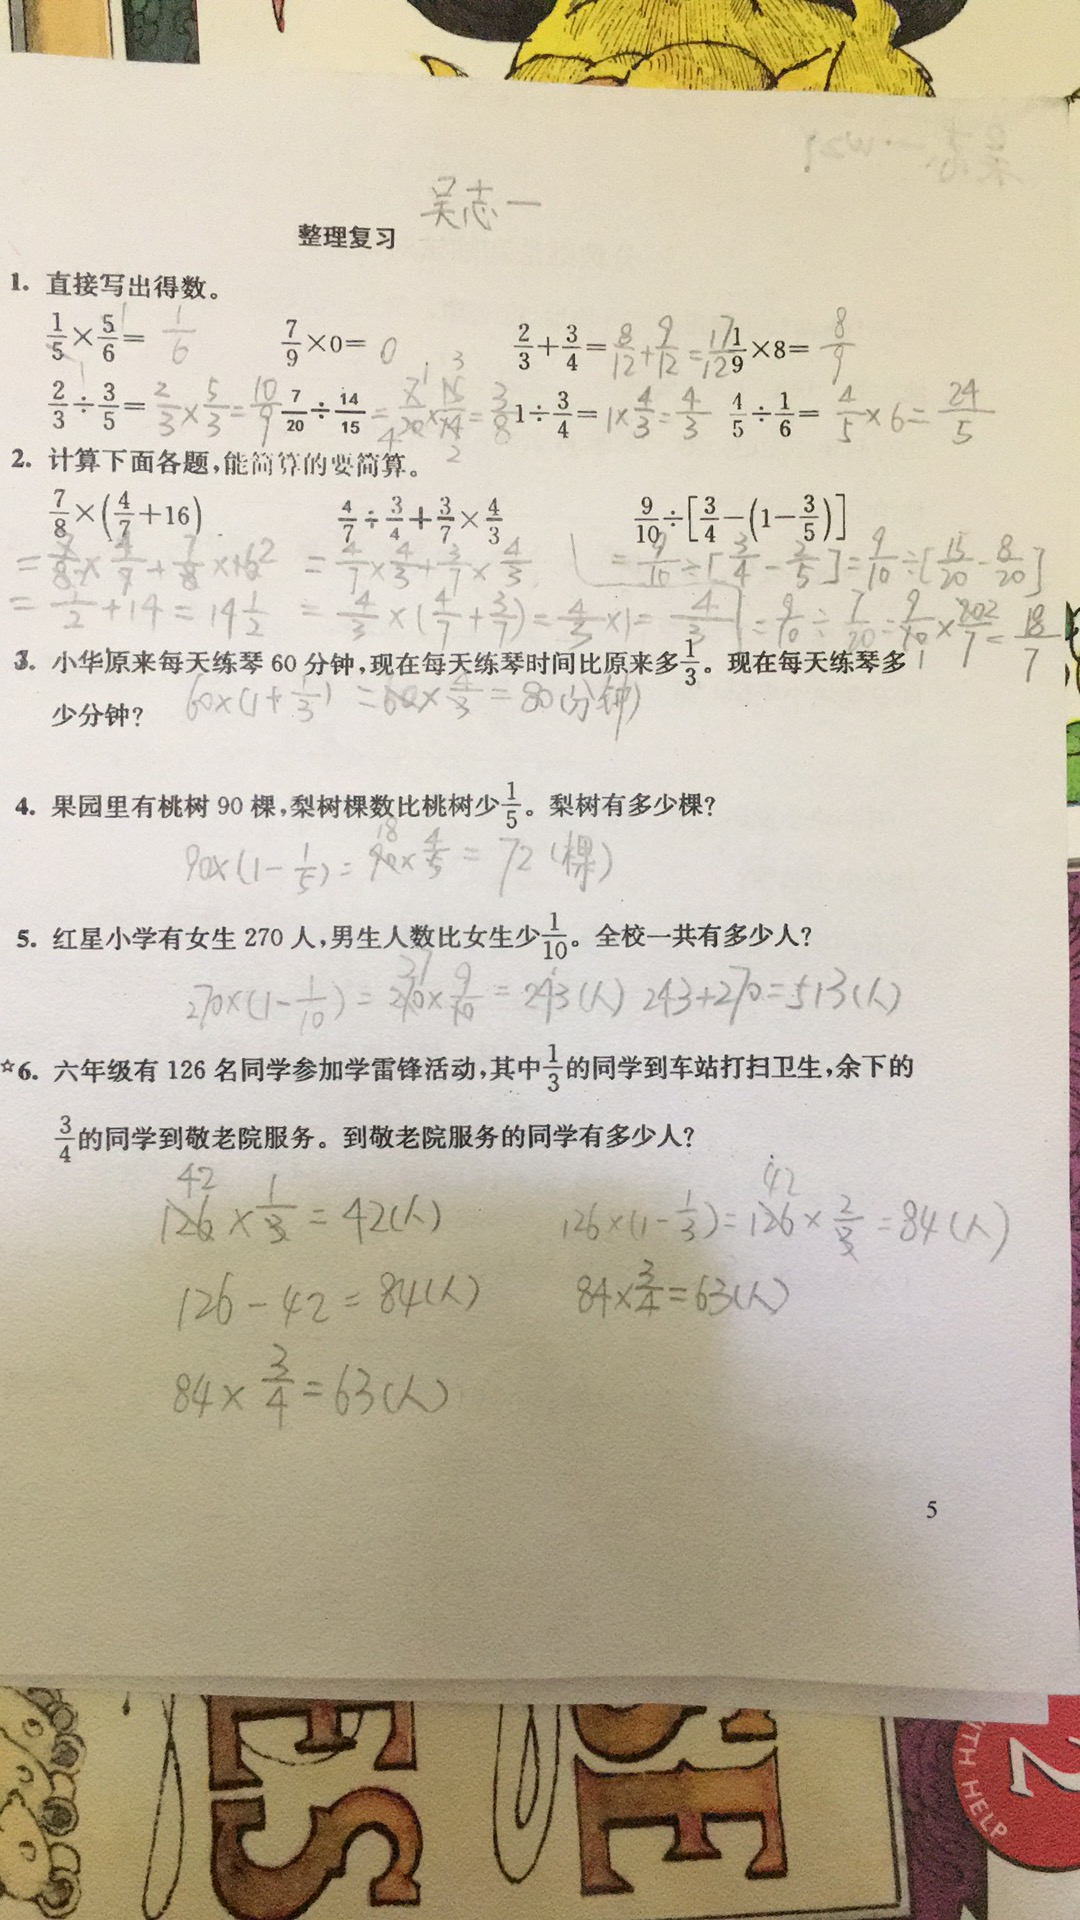 吴志一
整理复习
1. 直接写出得数。
1/5×5/6= 1/6 7/9×0= 0 2/3+3/4=8/12+9/12=17/12 1/9×8= 8/9
2/3÷3/5=2/3×5/3=10/9 7/20÷14/15=7/20×15/14=3/8 1÷3/4=1×4/3=4/3 4/5÷1/6=4/5×6=24/5
2. 计算下面各题,能简算的要简算。
7/8×(4/7+16) 4/7÷3/4+3/7×4/3 9/10÷[3/4-(1-3/5)]
=7/8×4/7+7/8×16 =4/7×4/3+3/7×4/3 =9/10÷[3/4-2/5]=9/10÷[15/20-8/20]
=1/2+14=14 1/2 =4/3×(4/7+3/7)=4/3×1=4/3 =9/10÷7/20=9/10×20/7=18/7
3. 小华原来每天练琴 60 分钟,现在每天练琴时间比原来多1/3。现在每天练琴多
少分钟? 60×(1+1/3)=60×4/3=80(分钟)
4. 果园里有桃树 90 棵,梨树棵数比桃树少1/5。梨树有多少棵?
90×(1-1/5)=90×4/5=72(棵)
5. 红星小学有女生 270 人,男生人数比女生少1/10。全校一共有多少人?
270×(1-1/10)=270×9/10=243(人) 243+270=513(人)
☆6. 六年级有 126 名同学参加学雷锋活动,其中1/3的同学到车站打扫卫生,余下的
3/4的同学到敬老院服务。到敬老院服务的同学有多少人?
126×1/3=42(人) 126×(1-1/3)=126×2/3=84(人)
126-42=84(人) 84×3/4=63(人)
84×3/4=63(人)
5
WITH HELP
2